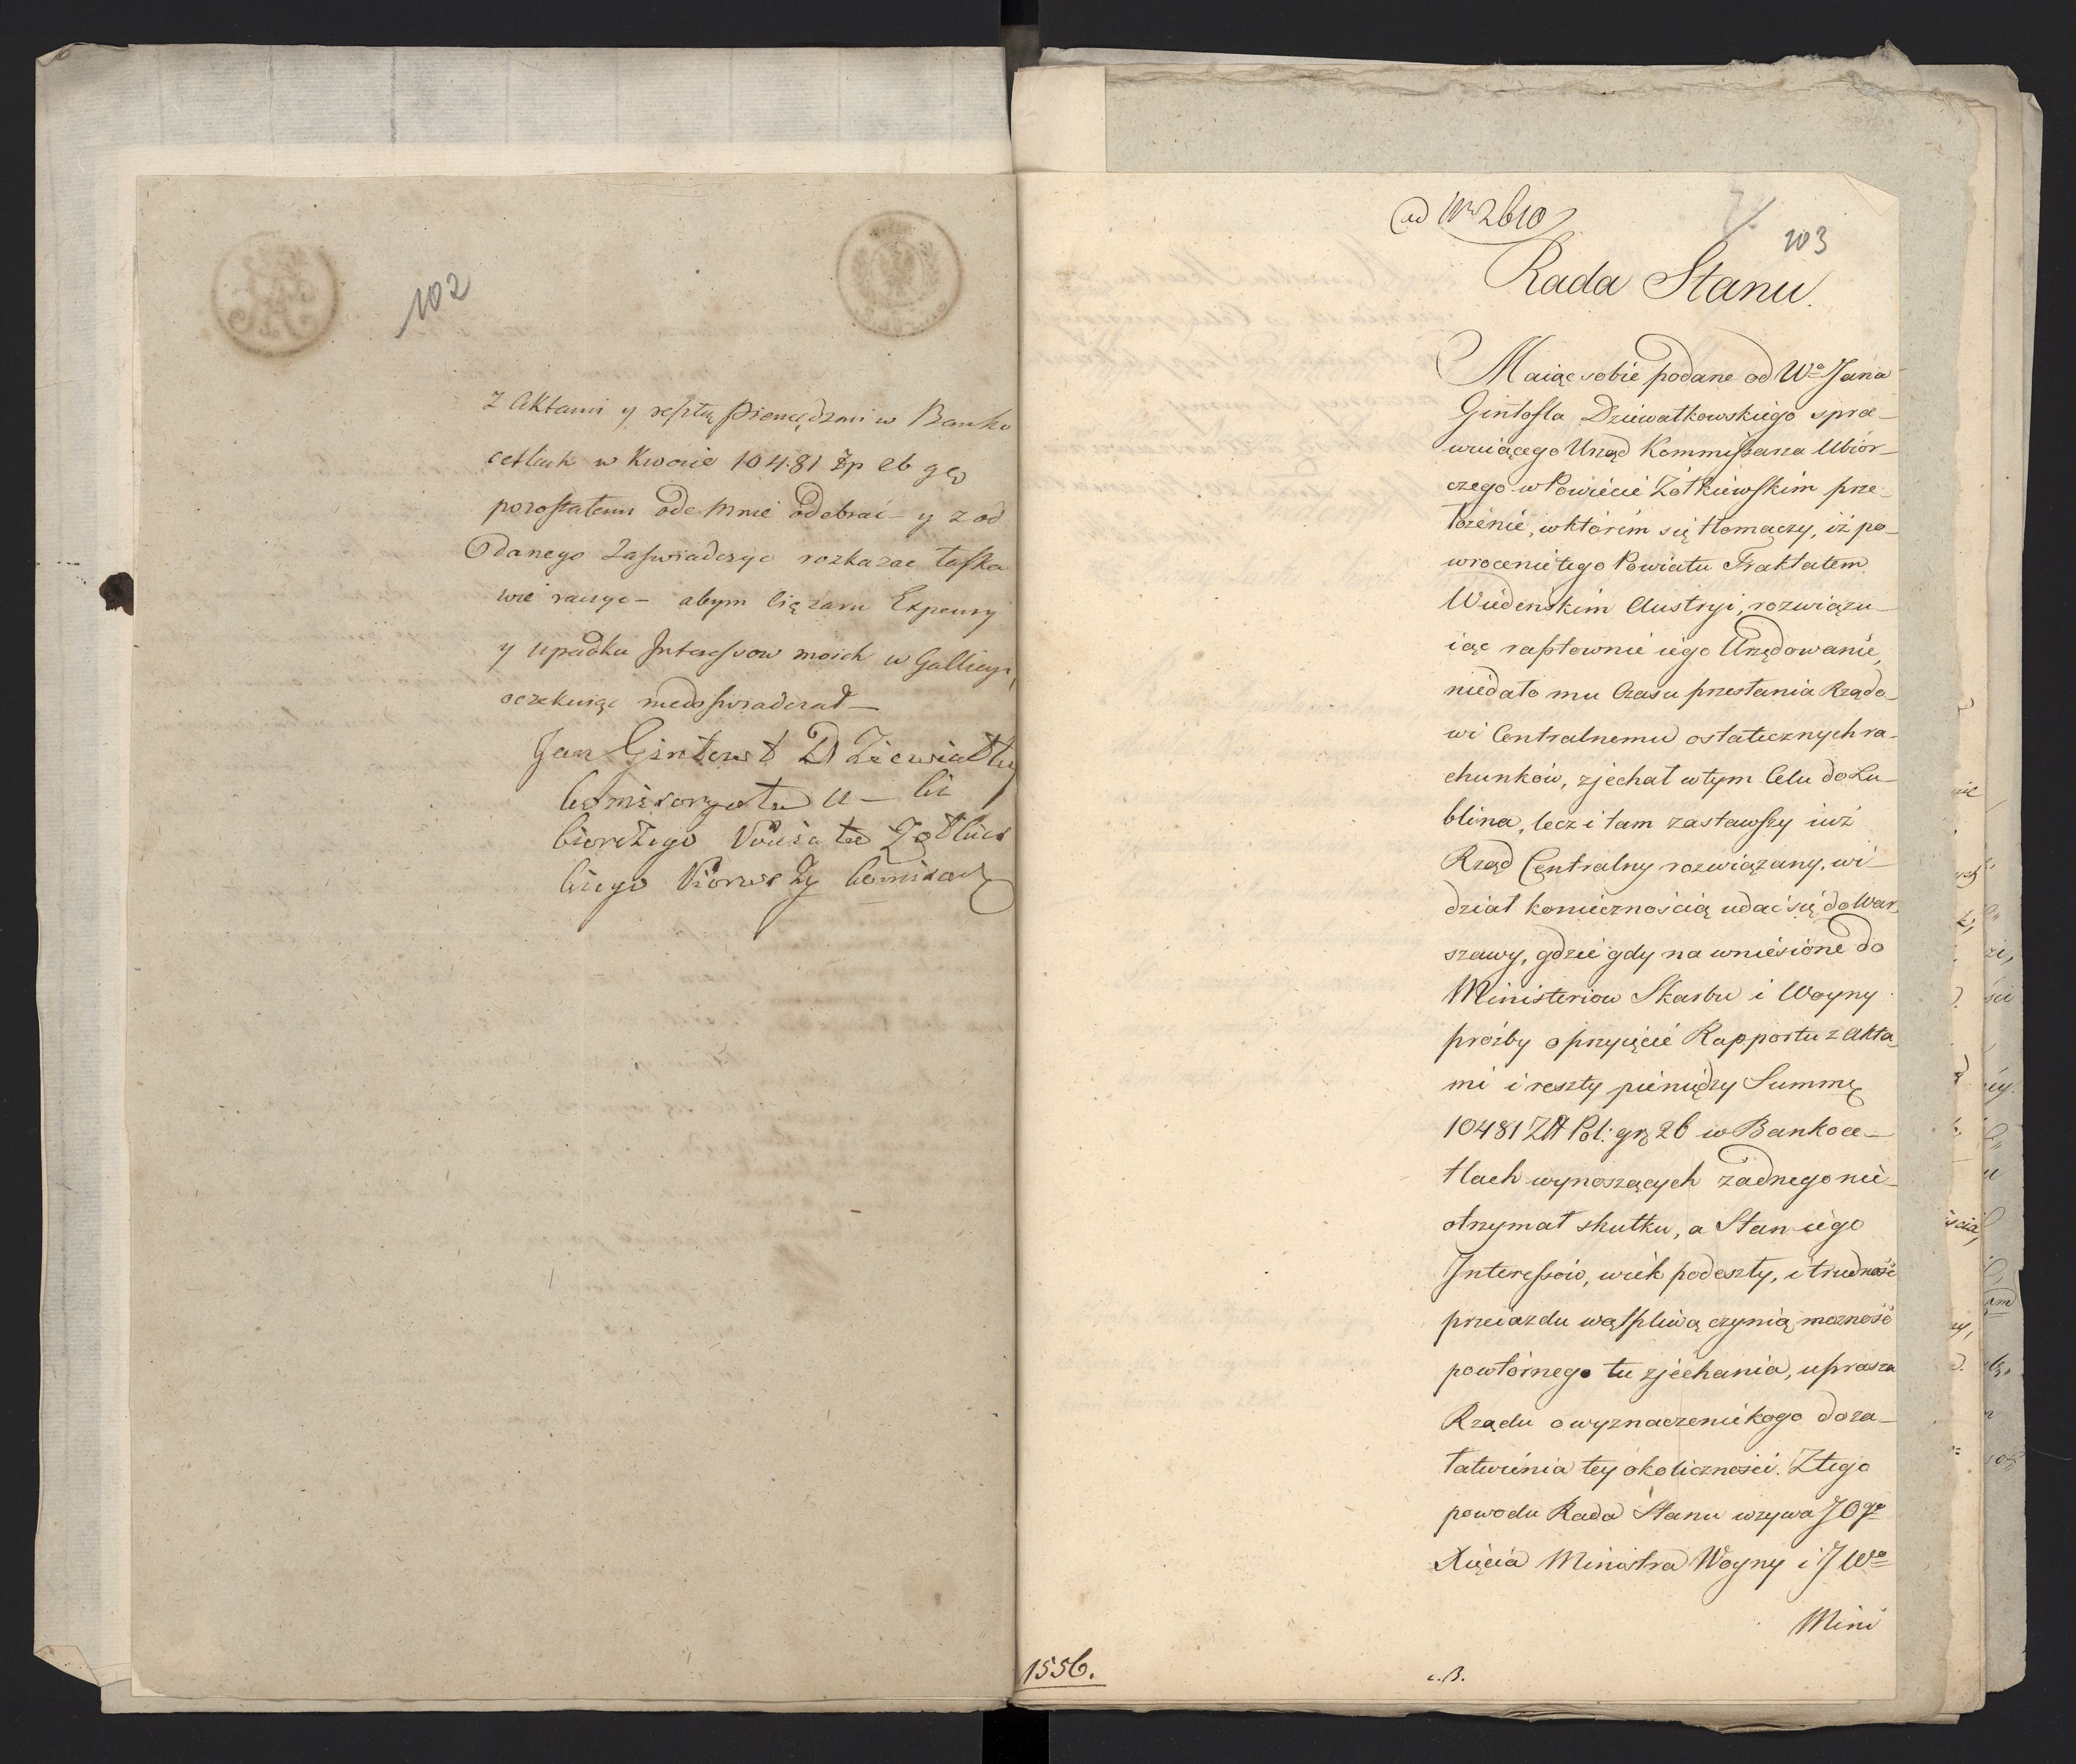 102
z Aktami y resztą Pieniędzmi w Banko
cetlach w kwocie 10481 Zp 26 gr
pozostałemi ode mnie odebrać – y z od
danego zaświadczyć rozkazać łaska
wie raczyć – abym ciężaru Expensy
y upadku Interessow moich w Gallicyi,
oczekuiąc niedoświadczał –
Jan Gintowt
103
ad Nr 2610
Rada Stanu.
Maiąc sobie podane od Wo Jana
Gintofta Dziwałkowskiego spra–
wuiącego Urząd Kommissarza Ubior–
czego w Powiecie Żółkiewskim prze–
łożenie, w którém się tłomaczy, iż po–
wrocenie tego Powiatu Traktatem
Wiedenskim Austryi, rozwiązu–
iąc raptownie iego Urzędowanie,
niedało mu Czasu przesłania Rządo–
wi Centralnemu ostatecznych ra–
chunków, zjechał w tym Celu do Lu–
blina, lecz i tam zastawszy iuż
Rząd Centralny rozwiązany, wi–
dział koniecznością udać się do War–
szawy, gdzie gdy na wniesione do
Ministeriow Skarbu i Woyny
prośby o przyięcie Rapportu z Akta–
mi i reszty pieniędzy Summę
10481 Złt Pol: gr 26 w Bankoce–
tlach wynoszących żadnego nie–
otrzymał skutku, a Stan iego
Interessów, wiek podeszły, i trudność
przeiazdu wątpliwą czynią możność
powtórnego tu zjechania, uprasza
Rządu o wyznaczenie kogo do za–
łatwienia tey okoliczności. Z tego
powodu Rada Stanu wzywa JOgo
Xięcia Ministra Woyny i JWo
Mini
1556.
c.B.